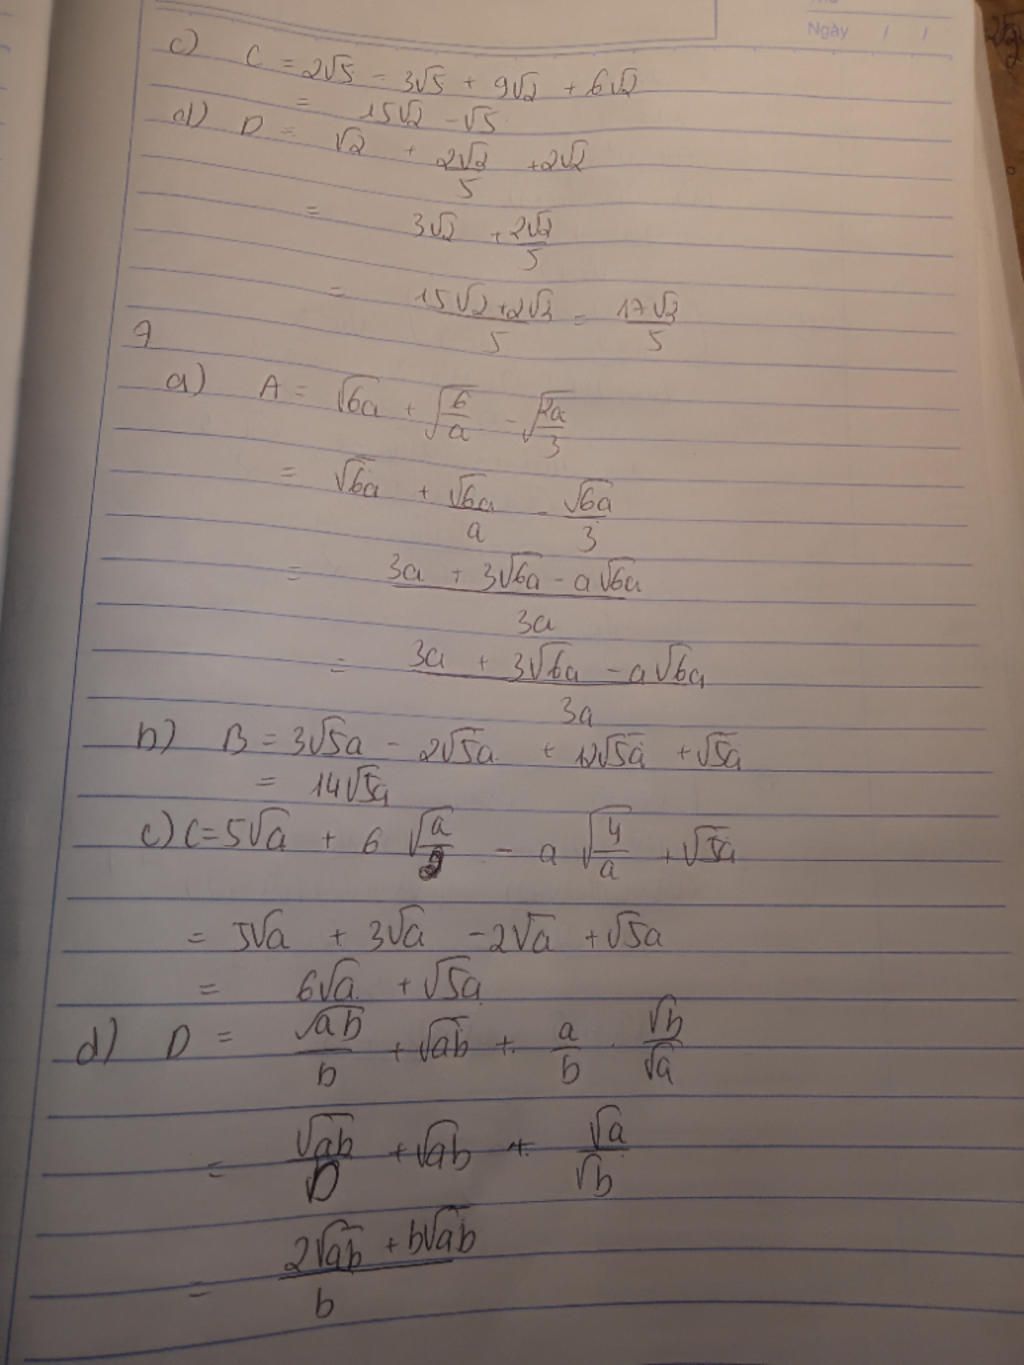 Ngày / /
c) C = 2√5 - 3√5 + 9√2 + 6√2
= 15√2 - √5
d) D = √2 + 2√2/5 + 2√2
= 3√2 + 2√2/5
= (15√2 + 2√2)/5 = 17√2/5
9
a) A = √6a + √(6/a) - √(2a/3)
= √6a + √6a/a - √6a/3
= (3a + 3√6a - a√6a)/3a
= (3a + 3√6a - a√6a)/3a
b) B = 3√5a - 2√5a + 12√5a + √5a
= 14√5a
c) C = 5√a + 6√(a/) - a√(4/a) + √5a
= 5√a + 3√a - 2√a + √5a
= 6√a + √5a
d) D = √ab/b + √ab + a/b . √b/√a
= √ab/b + √ab + √a/√b
= (2√ab + b√ab)/b